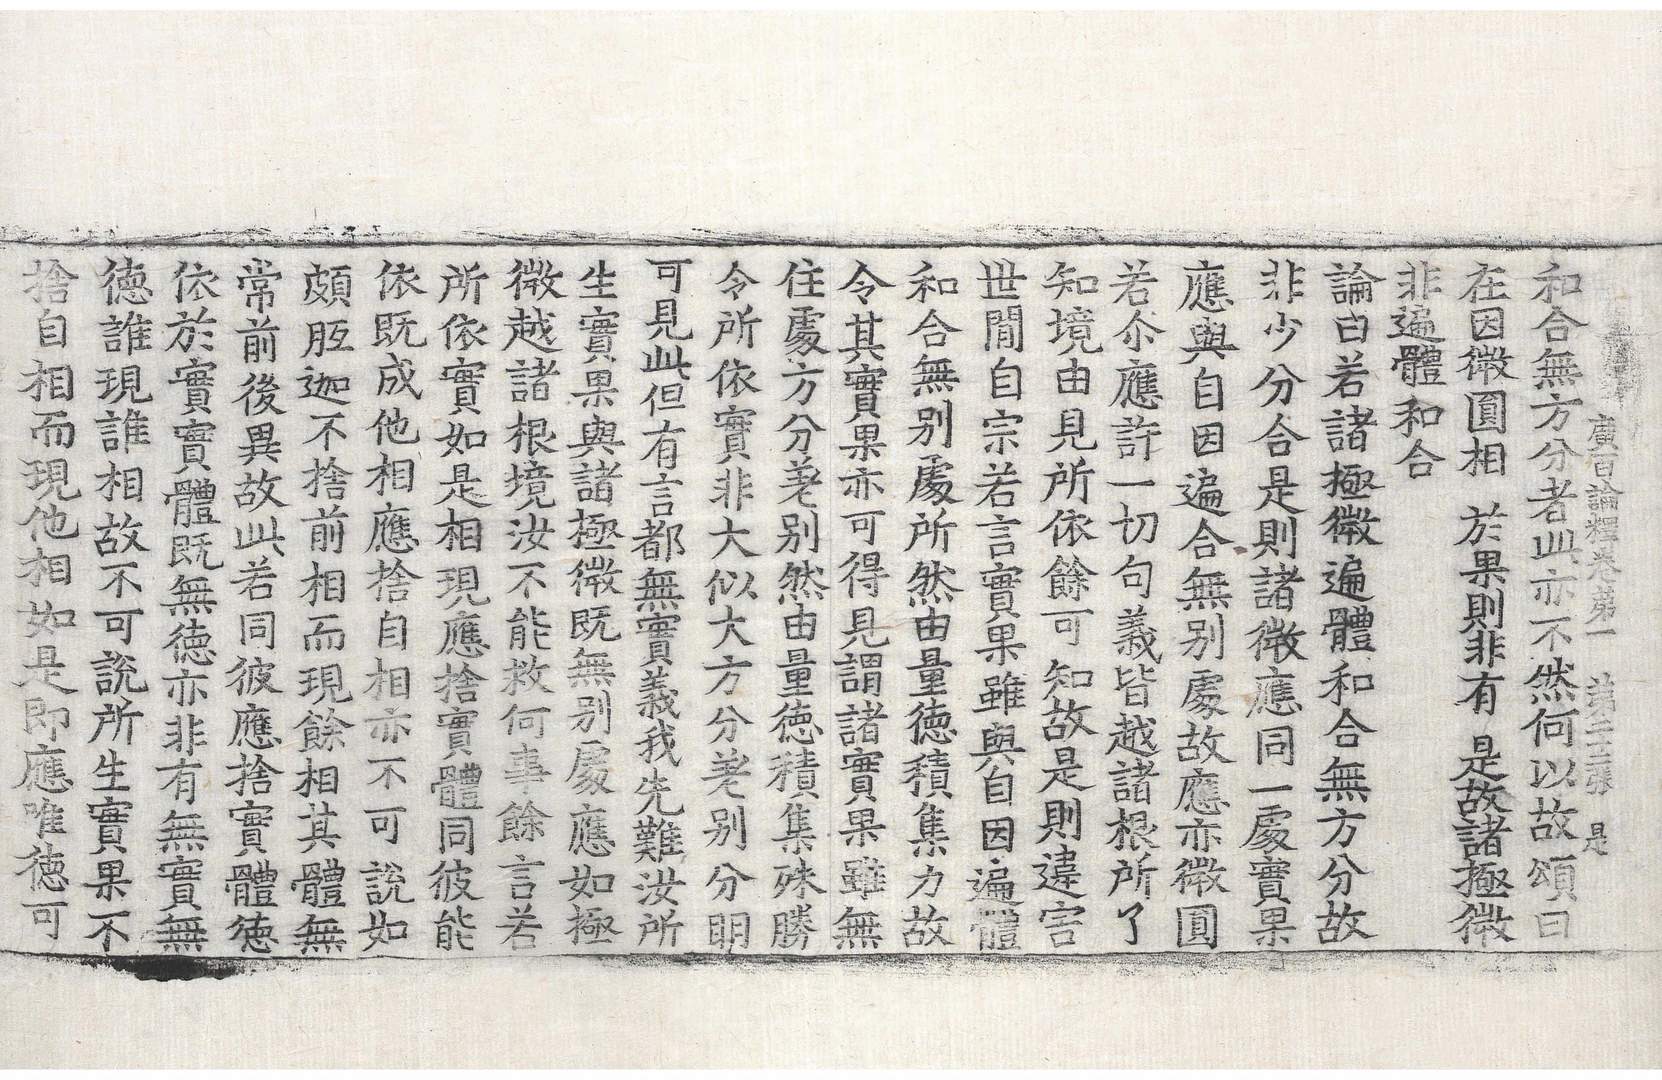 廣百論釋卷第一　第二三張　是
和合無方分者此亦不然何以故頌曰
在因微圓相　於果則非有　是故諸極微
非遍體和合
論曰若諸極微遍體和合無方分故
非少分合是則諸微應同一處實果
應與自因遍合無別處故應亦微圓
若尒應許一切句義皆越諸根所了
知境由見所依餘可知故是則違害
世間自宗若言實果雖與自因遍體
和合無別處所然由量德積集力故
令其實果亦可得見謂諸實果雖無
住處方分差別然由量德積集殊勝
令所依實非大似大方分差別分明
可見此但有言都無實義我先難汝所
生實果與諸極微既無別處應如極
微越諸根境汝不能救何事餘言若
所依實如是相現應捨實體同彼能
依既成他相應捨自相亦不可說如
頗胝迦不捨前相而現餘相其體無
常前後異故此若同彼應捨實體德
依於實實體既無德亦非有無實無
德誰現誰相故不可說所生實果不
捨自相而現他相如是即應唯德可